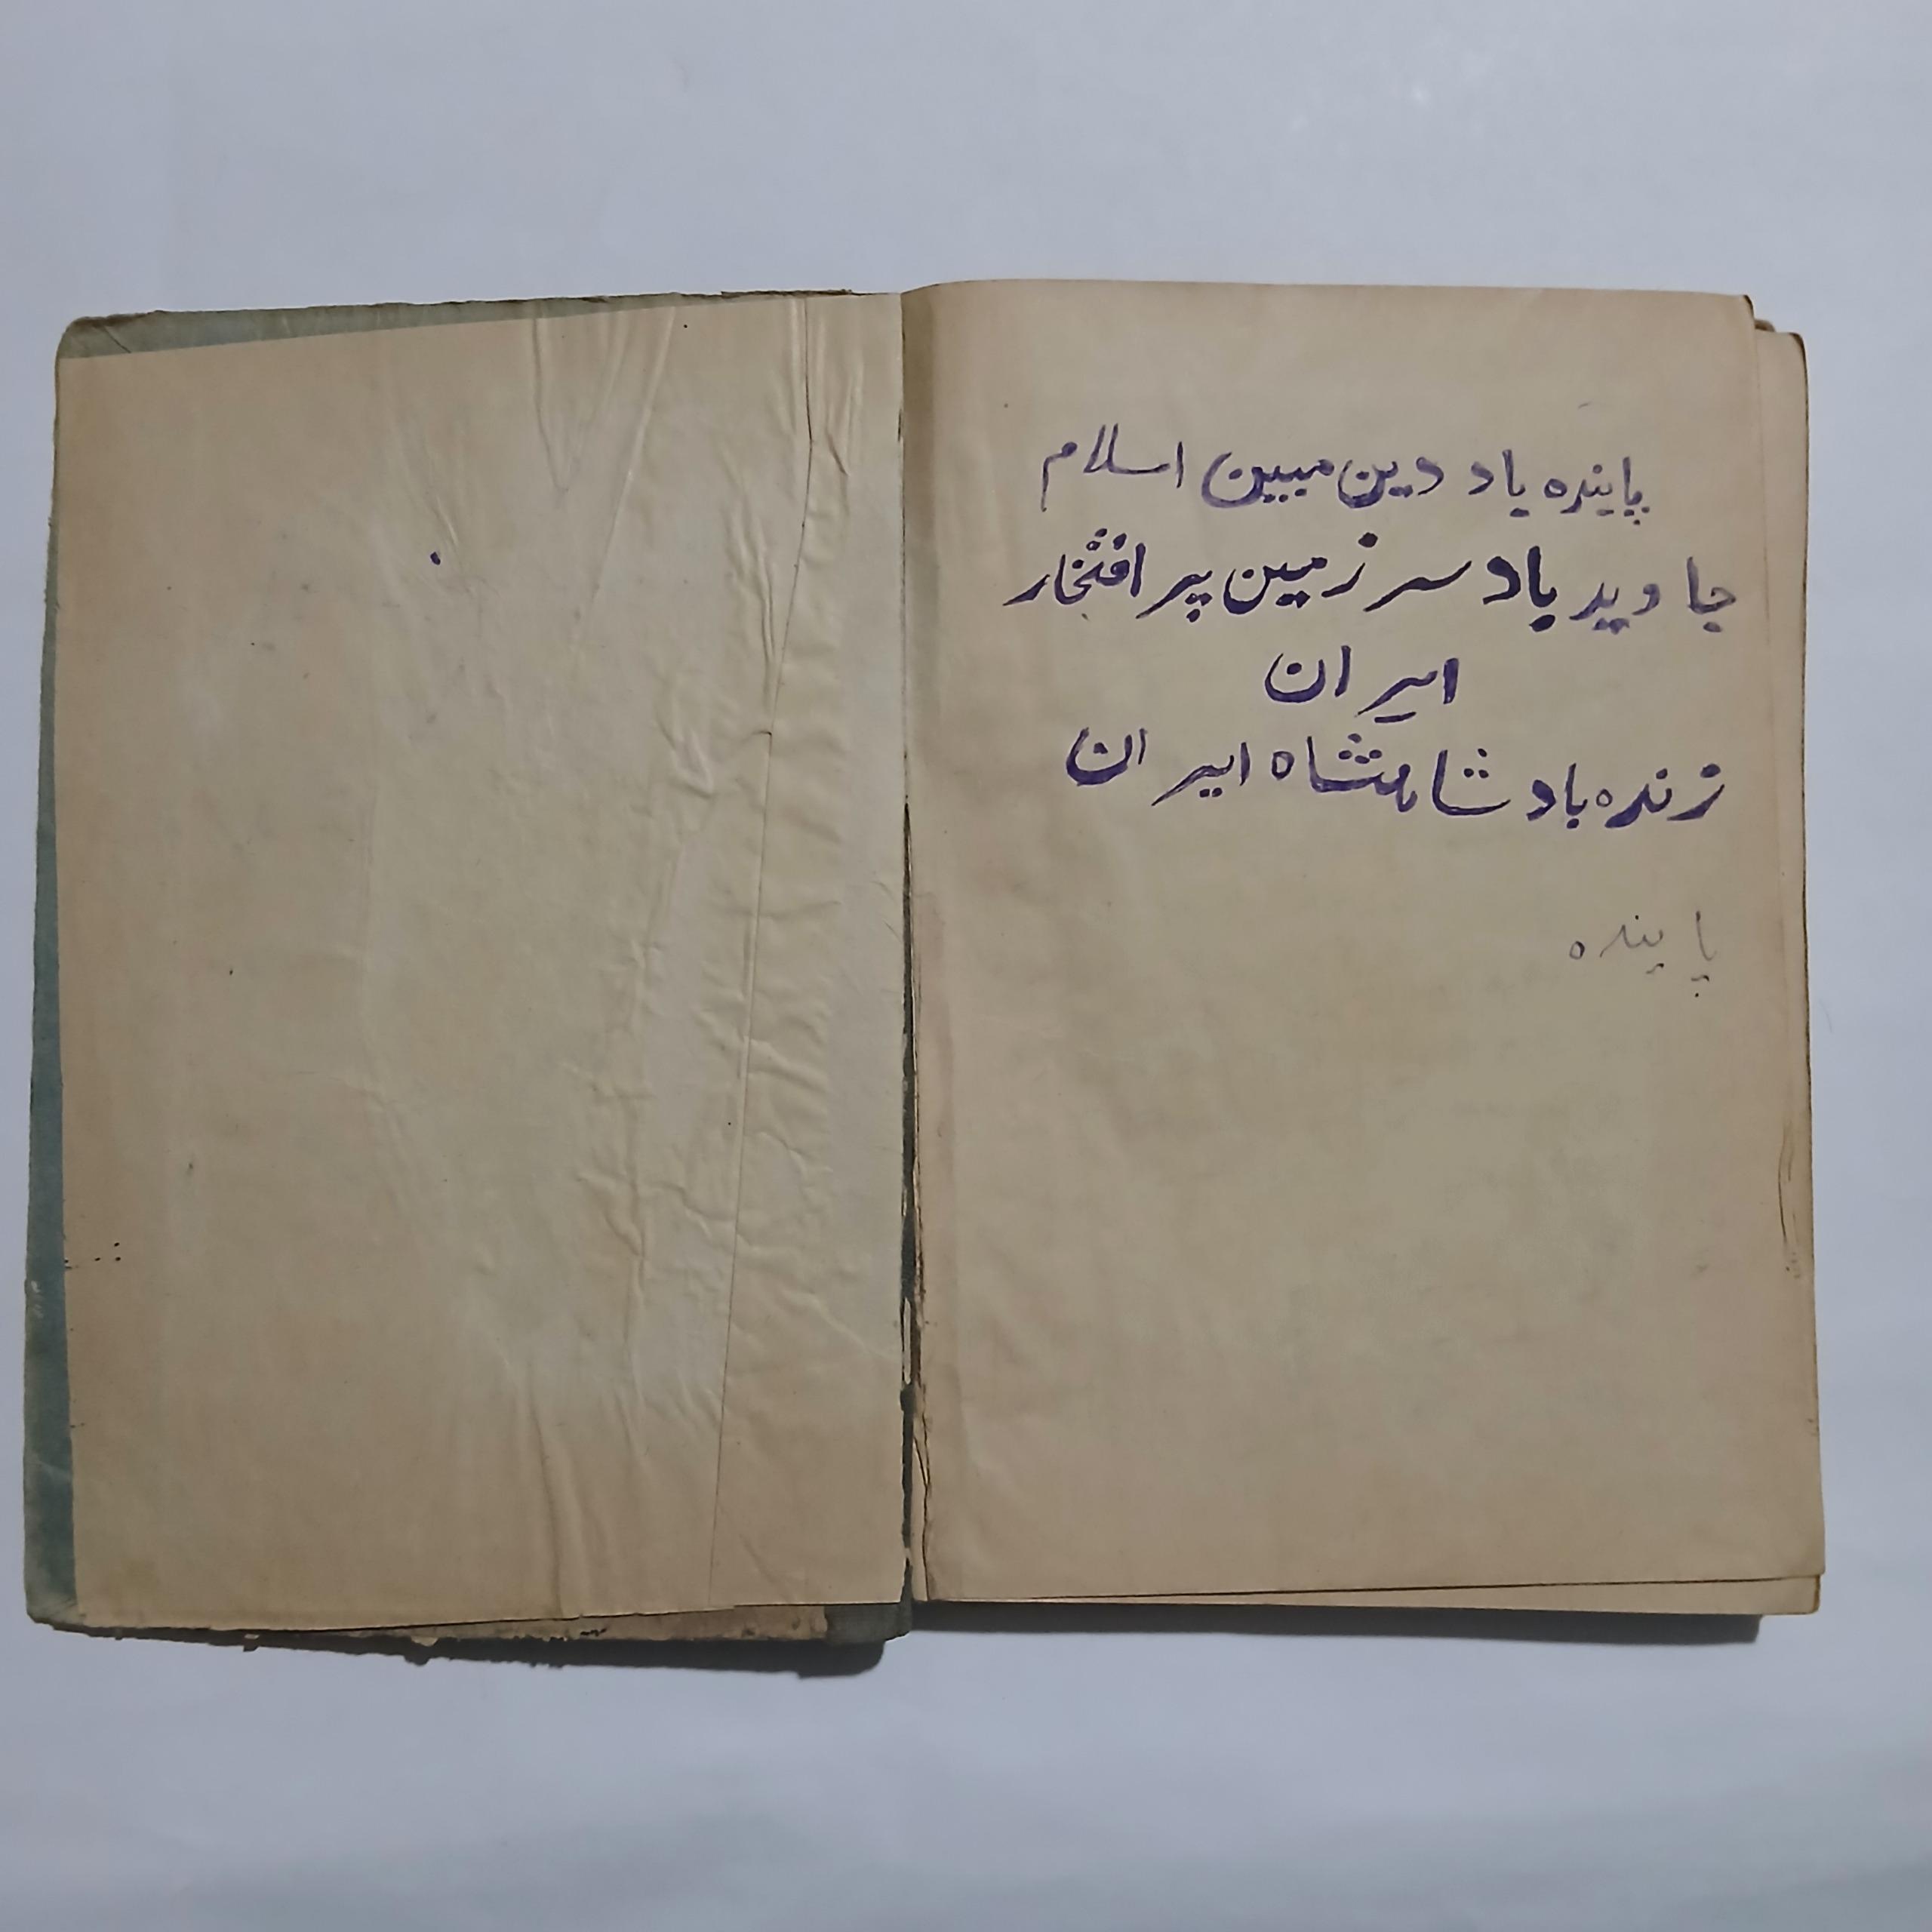 پاینده باد دین مبین اسلام
جاوید باد سرزمین پر افتخار
ایران
زنده باد شاهنشاه ایران
پاینده